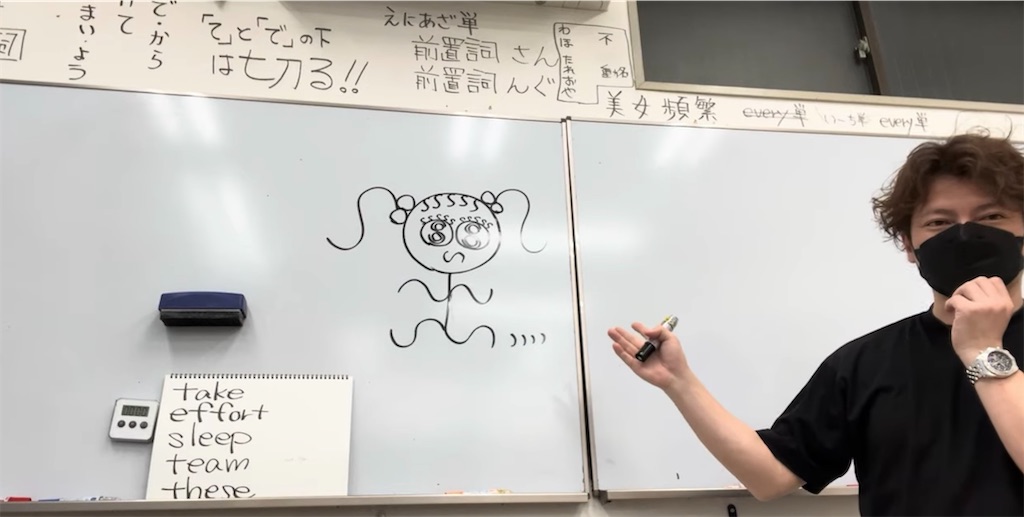 詞
で・から
いて
まい・よう
「て」と「で」の下
は切る!!
えにあざ単
前置詞 さん
前置詞 んぐ
不
美女頻繁 every単 いーち単 every単
take
effort
sleep
team
these